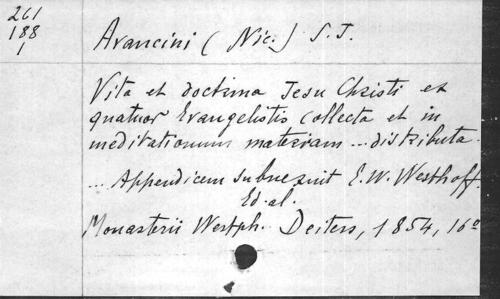 261
188
1
Avancini (Nic.) S. J.
Vita et doctrina Jesu Christi ex
quatuor Evangelistis collecta et in
meditationum materiam ... distributa.
... Appendicem subnexuit E. W. Westhoff.
Ed. al.
Monasterii Westph. Deiters, 1854, 16o